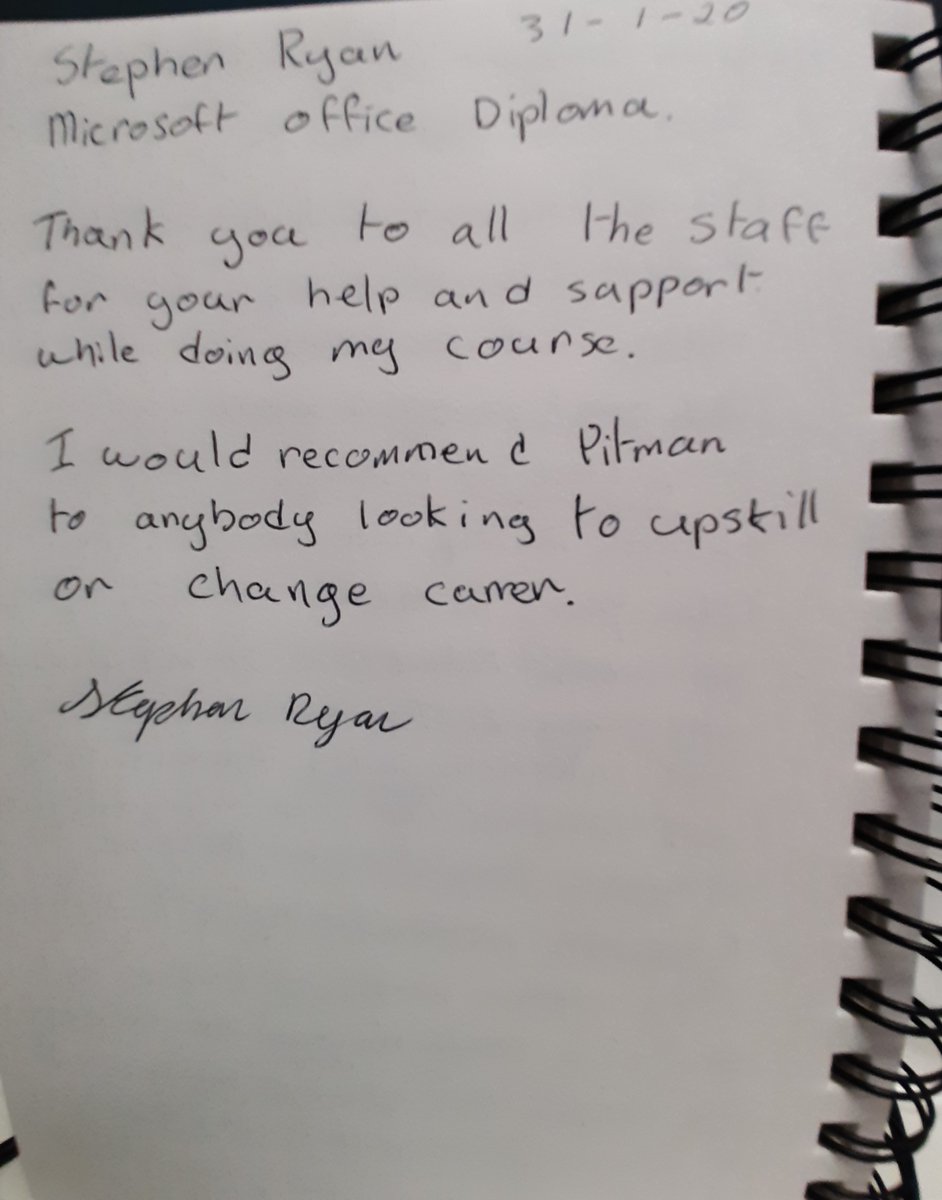 Stephen Ryan 31-1-20
Microsoft office Diploma.
Thank you to all the staff
for your help and support
while doing my course.
I would recommend Pitman
to anybody looking to upskill
or change carrer.
Stephen Ryan